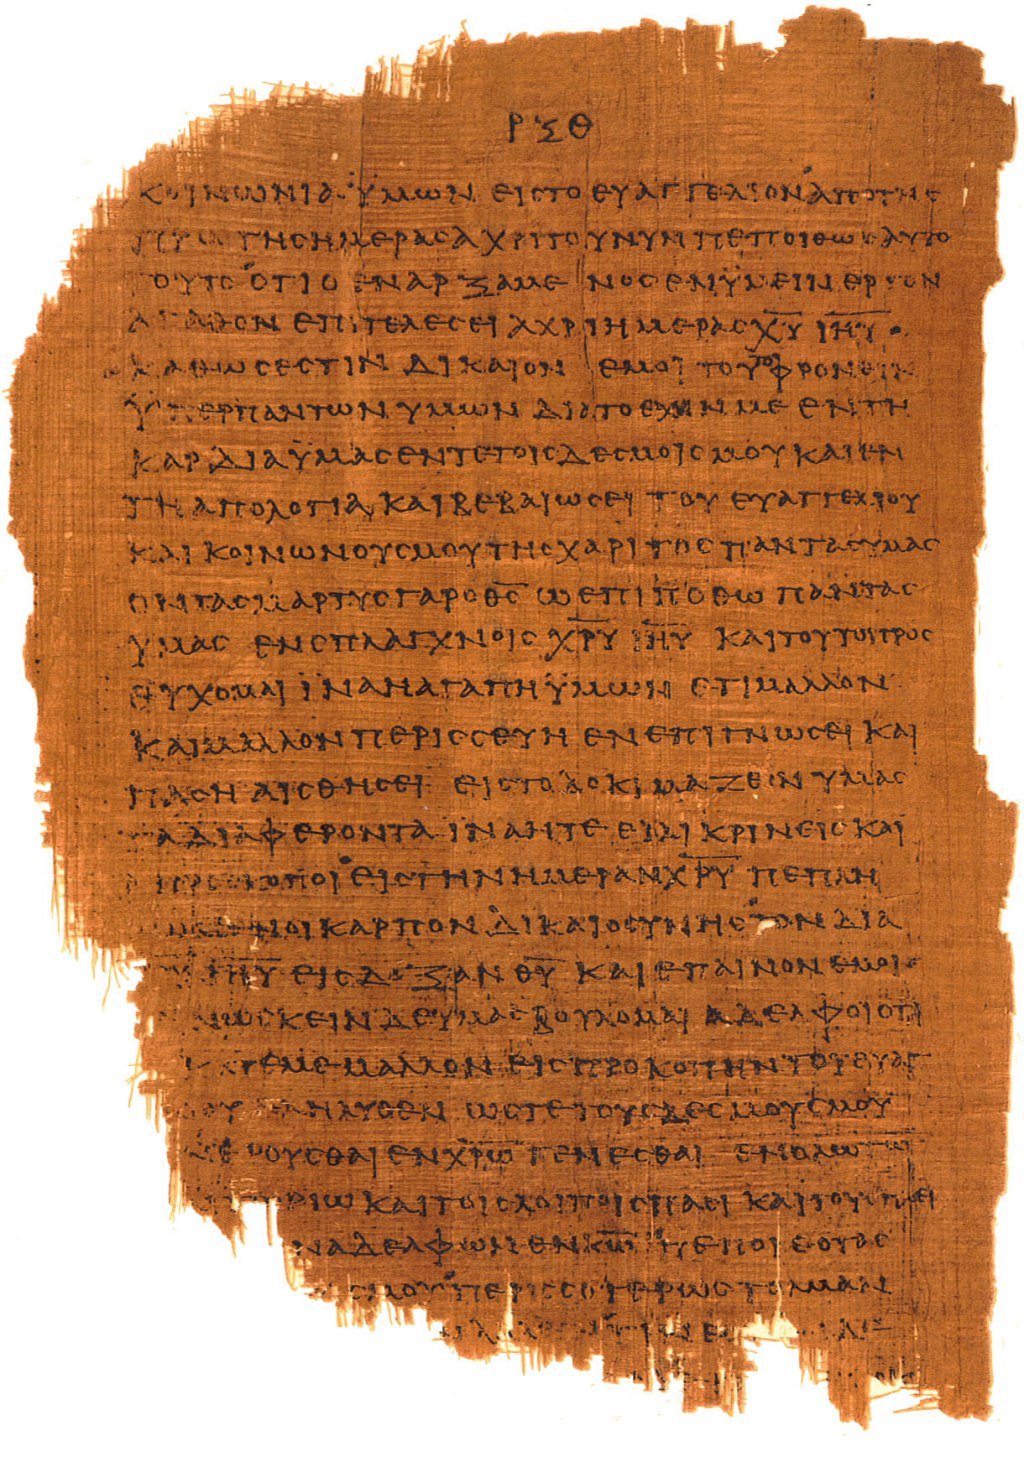 ΡΞΘ
ΚΟΙΝΩΝΙΑ ΫΜΩΝ ΕΙΣ ΤΟ ΕΥΑΓΓΕΛΙΟΝ ΑΠΟ ΤΗΣ
ΠΡΩΤΗΣ ΗΜΕΡΑΣ ΑΧΡΙ ΤΟΥ ΝΥΝ ΠΕΠΟΙΘΩΣ ΑΥΤΟ
ΤΟΥΤΟ ΟΤΙ Ο ΕΝΑΡΞΑΜΕΝΟΣ ΕΝ ΫΜΕΙΝ ΕΡΓΟΝ
ΑΓΑΘΟΝ ΕΠΙΤΕΛΕΣΕΙ ΑΧΡΙ ΗΜΕΡΑΣ Χ̅Υ̅ Ι̅Η̅Υ̅·
ΚΑΘΩΣ ΕΣΤΙΝ ΔΙΚΑΙΟΝ ΕΜΟΙ ΤΟΥΤΟ ΦΡΟΝΕΙΝ
ΫΠΕΡ ΠΑΝΤΩΝ ΥΜΩΝ ΔΙΑ ΤΟ ΕΧΙΝ ΜΕ ΕΝ ΤΗ
ΚΑΡΔΙΑ ΫΜΑΣ ΕΝ ΤΕ ΤΟΙΣ ΔΕΣΜΟΙΣ ΜΟΥ ΚΑΙ ΕΝ
ΤΗ ΑΠΟΛΟΓΙΑ ΚΑΙ ΒΕΒΑΙΩΣΕΙ ΤΟΥ ΕΥΑΓΓΕΛΙΟΥ
ΚΑΙ ΚΟΙΝΩΝΟΥΣ ΜΟΥ ΤΗΣ ΧΑΡΙΤΟΣ ΠΑΝΤΑΣ ΥΜΑΣ
ΟΝΤΑΣ ΜΑΡΤΥΣ ΓΑΡ Ο Θ̅Σ̅ ΩΣ ΕΠΙΠΟΘΩ ΠΑΝΤΑΣ
ΥΜΑΣ ΕΝ ΣΠΛΑΓΧΝΟΙΣ Χ̅Ρ̅Υ̅ Ι̅Η̅Υ̅ ΚΑΙ ΤΟΥΤΟ ΠΡΟΣ
ΕΥΧΟΜΑΙ ΙΝΑ Η ΑΓΑΠΗ ΫΜΩΝ ΕΤΙ ΜΑΛΛΟΝ
ΚΑΙ ΜΑΛΛΟΝ ΠΕΡΙΣΣΕΥΗ ΕΝ ΕΠΙΓΝΩΣΕΙ ΚΑΙ
ΠΑΣΗ ΑΙΣΘΗΣΕΙ ΕΙΣ ΤΟ ΔΟΚΙΜΑΖΕΙΝ ΥΜΑΣ
ΤΑ ΔΙΑΦΕΡΟΝΤΑ ΙΝΑ ΗΤΕ ΕΙΛΙΚΡΙΝΕΙΣ ΚΑΙ
ΑΠΡΟΣΚΟΠΟΙ ΕΙΣ ΤΗΝ ΗΜΕΡΑΝ Χ̅Ρ̅Υ̅ ΠΕΠΛΗ
ΜΕΝΟΙ ΚΑΡΠΟΝ ΔΙΚΑΙΟΣΥΝΗΣ ΤΟΝ ΔΙΑ
Ι̅Η̅Υ̅ ΕΙΣ ΔΟΞΑΝ Θ̅Υ̅ ΚΑΙ ΕΠΑΙΝΟΝ ΕΜΟΙ
ΝΩΣΚΕΙΝ ΔΕ ΥΜΑΣ ΒΟΥΛΟΜΑΙ ΑΔΕΛΦΟΙ ΟΤΙ
ΚΑΤ ΕΜΕ ΜΑΛΛΟΝ ΕΙΣ ΠΡΟΚΟΠΗΝ ΤΟΥ ΕΥΑΓ
ΙΟΥ ΕΛΗΛΥΘΕΝ ΩΣΤΕ ΤΟΥΣ ΔΕΣΜΟΥΣ ΜΟΥ
ΡΟΥΣ ΘΑΙ ΕΝ Χ̅Ρ̅Ω̅ ΓΕΝΕΣΘΑΙ ΕΝ ΟΛΩ ΤΩ
ΡΙΩ ΚΑΙ ΤΟΙΣ ΛΟΙΠΟΙΣ ΠΑΣΙ ΚΑΙ ΤΟΥΣ
Ν ΑΔΕΛΦΩΝ ΕΝ Κ̅Ω̅ ΠΕΠΟΙΘΟΤΑΣ
Σ ΜΟΥ ΠΕΡΙΣΣΟΤΕΡΩΣ ΤΟΛΜΑΝ